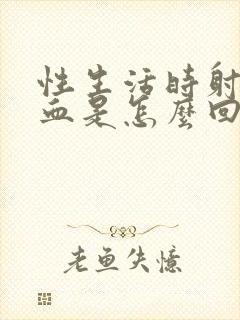 性生活時射
血是怎麼回
老鱼失憶